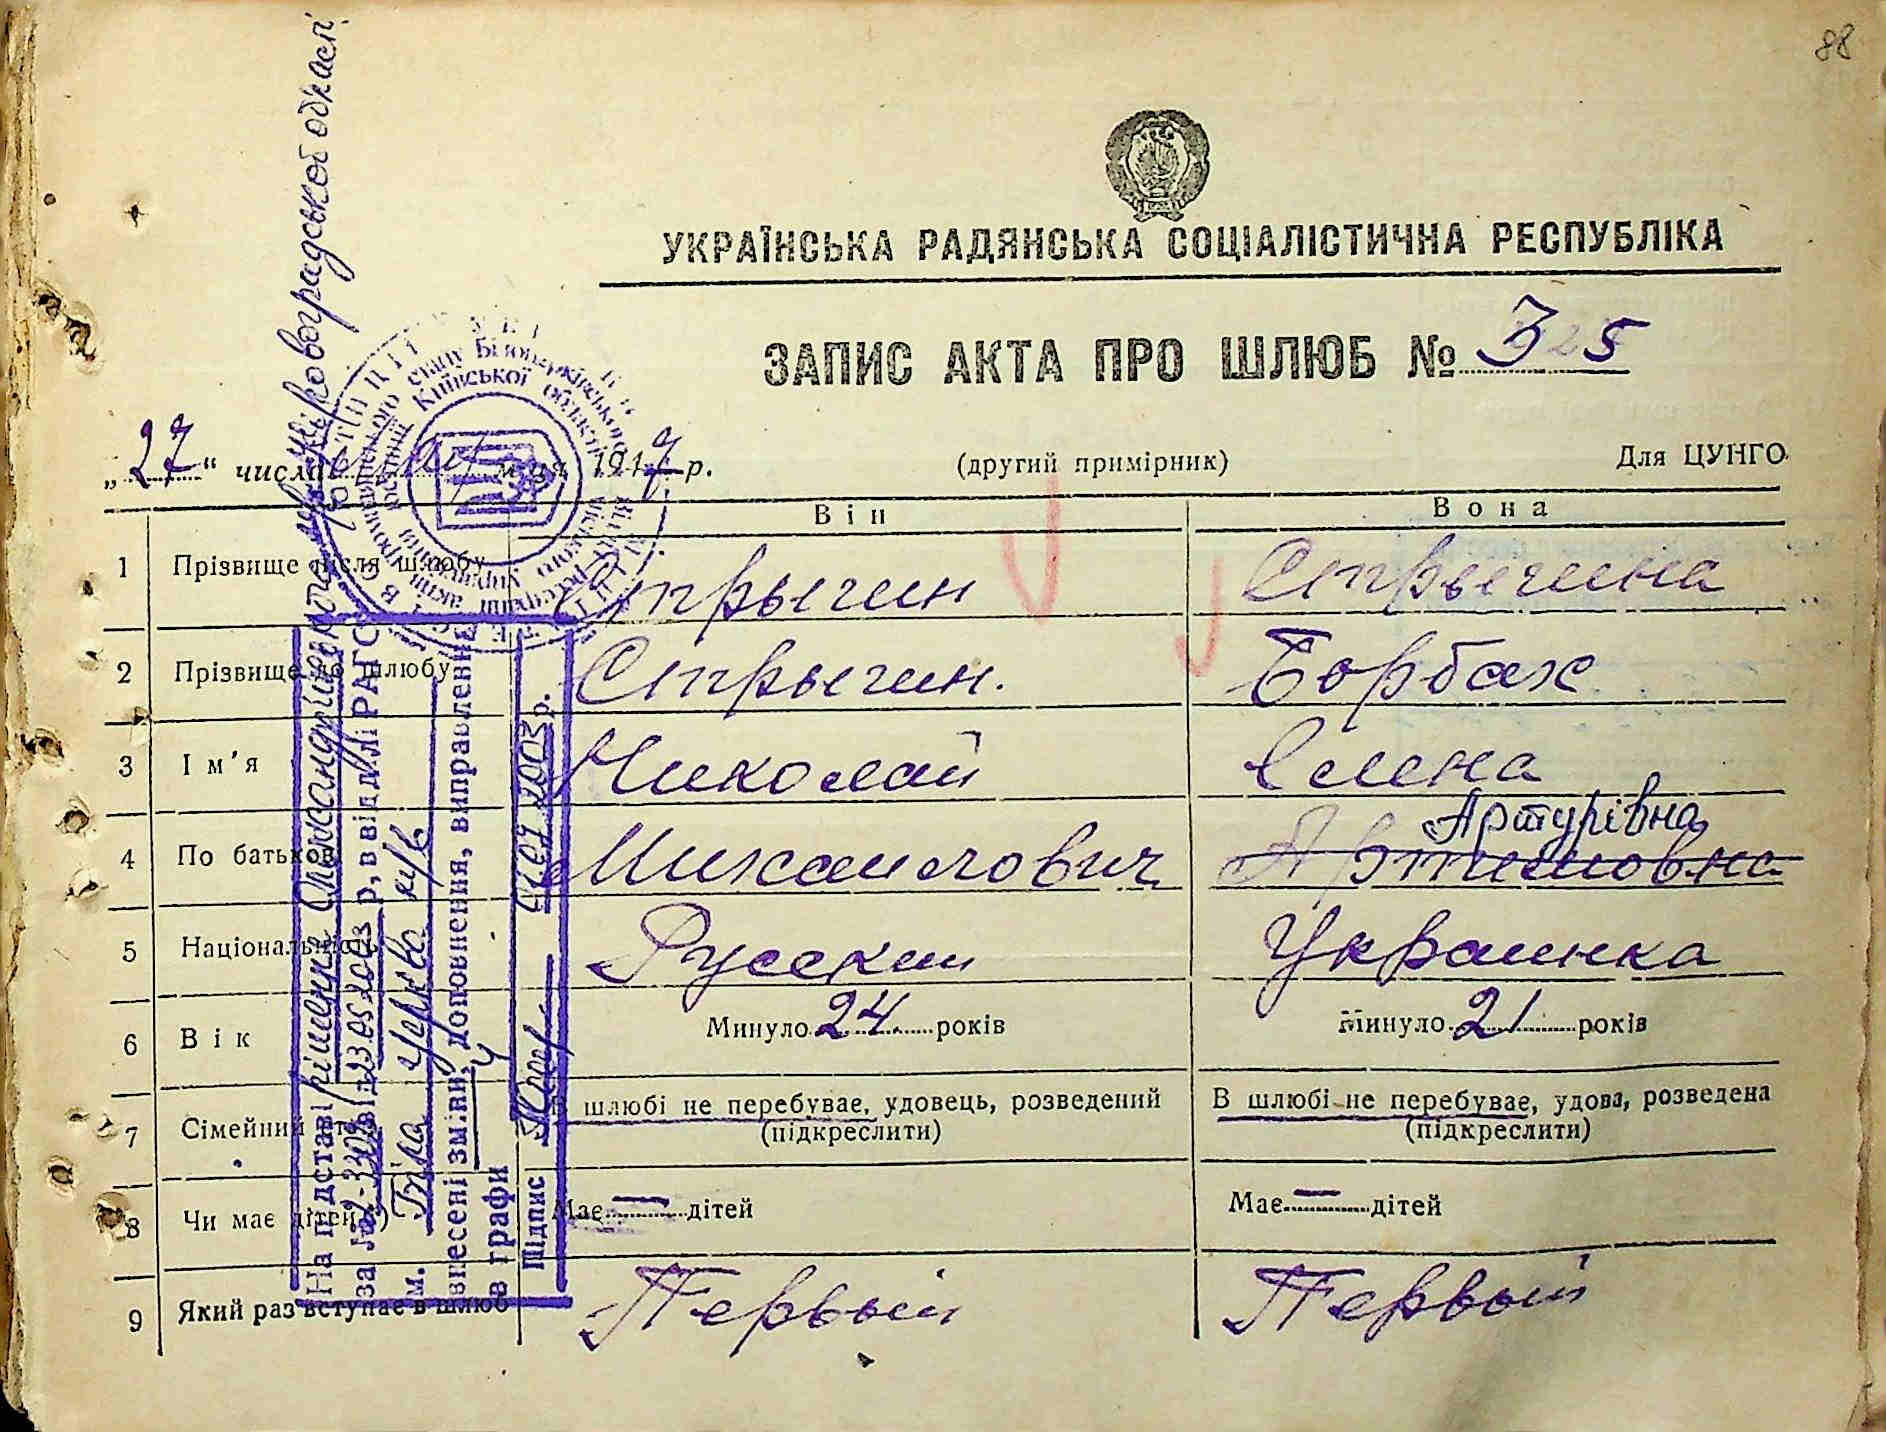 88
УКРАЇНСЬКА РАДЯНСЬКА СОЦІАЛІСТИЧНА РЕСПУБЛІКА
ЗАПИС АКТА ПРО ШЛЮБ № 325
„27“ числа мая м-ця 1947 р.
(другий примірник)
Для ЦУНГО
Він
Вона
1 Прізвище після шлюбу Стрыгин Стрыгина
2 Прізвище до шлюбу Стрыгин. Борбах
3 Ім'я Николай Елена
Артурівна
4 По батькові Михайлович Артемовна
5 Національність Русский Украинка
6 Вік Минуло 24 років Минуло 21 років
7 Сімейний стан В шлюбі не перебуває, удовець, розведений В шлюбі не перебуває, удова, розведена
(підкреслити) (підкреслити)
8 Чи має дітей Має — дітей Має — дітей
9 Який раз вступає в шлюб Первый Первый
На підставі рішення Олександрійського Кіровоградської області
за № 2-3303 від 23.05.2003 р, в відділі РАГС
м. Біла Церква
внесені зміни, доповнення, виправлення
в графи 4
Підпис 2003 р.